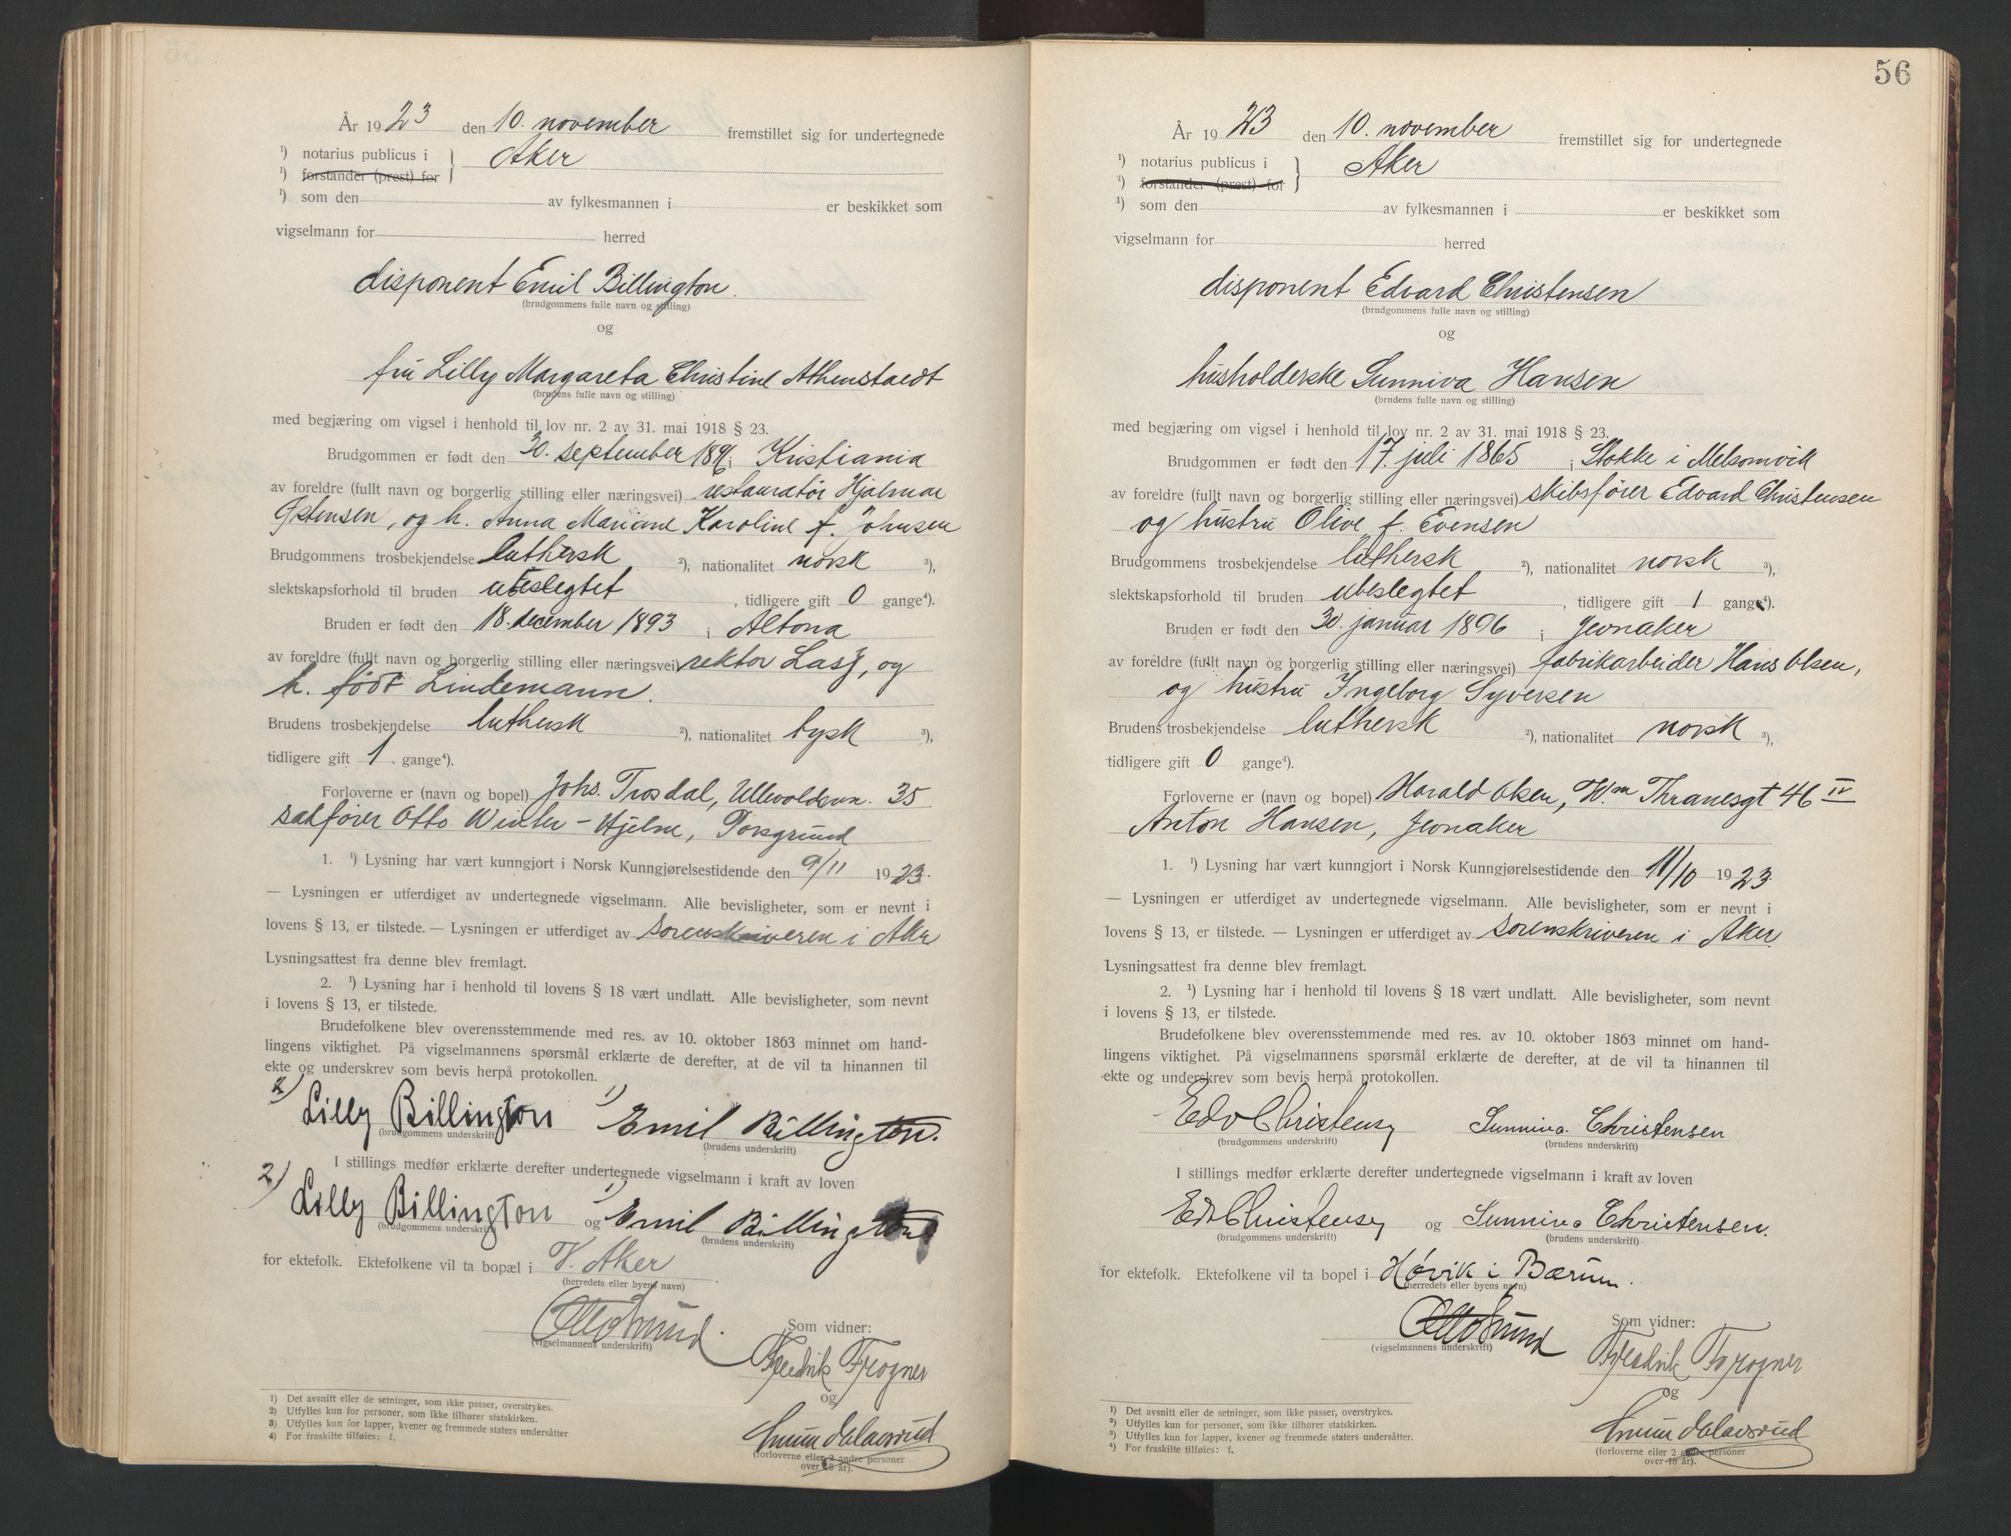 År 1923 den 10. november fremstillet sig for undertegnede
¹) notarius publicus i } Aker
¹) forstander (prest) for
¹) som den av fylkesmannen i er beskikket som
vigselmann for herred
disponent Emil Billington.
(brudgommens fulle navn og stilling)
og
fru Lilly Margareta Christine Athenstaedt
(brudens fulle navn og stilling)
med begjæring om vigsel i henhold til lov nr. 2 av 31. mai 1918 § 23.
Brudgommen er født den 30. september i Kristiania
av foreldre (fullt navn og borgerlig stilling eller næringsvei) restauratør Hjalmar
Østensen, og h. Anna Mariane Karoline f. Johnsen
Brudgommens trosbekjendelse luthersk ²), nationalitet norsk ³),
slektskapsforhold til bruden ubeslegtet, tidligere gift 0 gange⁴).
Bruden er født den 18. december 1893 i Altona
av foreldre (fullt navn og borgerlig stilling eller næringsvei) rektor , og
h. født Lindemann.
Brudens trosbekjendelse luthersk ²), nationalitet tysk ³),
tidligere gift 1 gange⁴).
Forloverne er (navn og bopel) Johs. Trosdal, Ullevoldsvn. 35
sakfører Otto Winter-Hjelm, Porsgrund
1. ¹) Lysning har vært kunngjort i Norsk Kunngjørelsestidende den 9/11 1923.
— Lysningen er utferdiget av undertegnede vigselmann. Alle bevisligheter, som er nevnt i
lovens § 13, er tilstede. — Lysningen er utferdiget av sorenskriveren i Aker
Lysningsattest fra denne blev fremlagt.
2. ¹) Lysning har i henhold til lovens § 18 vært undlatt. Alle bevisligheter, som nevnt
i lovens § 13, er tilstede.
Brudefolkene blev overensstemmende med res. av 10. oktober 1863 minnet om hand-
lingens viktighet. På vigselmannens spørsmål erklærte de derefter, at de vil ta hinannen til
ekte og underskrev som bevis herpå protokollen.
2) Lilly Billington 1) Emil Billington.
(brudgommens underskrift) (brudens underskrift)
I stillings medfør erklærte derefter undertegnede vigselmann i kraft av loven
2) Lilly Billington og 1) Emil Billington
(brudgommens underskrift) (brudens underskrift)
for ektefolk. Ektefolkene vil ta bopæl i V. Aker
(herredets eller byens navn)
Som vidner:
(vigselmannens underskrift)
Fredrik Frogner
og
(forloverne eller 2 andre personer
over 18 år).
1) Det avsnitt eller de setninger, som ikke passer, overstrykes.
2) Utfylles kun for personer, som ikke tilhører statskirken.
3) Utfylles kun for lapper, kvener og fremmede staters undersåtter
4) For fraskilte tilføies: f.
56
År 1923 den 10. november fremstillet sig for undertegnede
¹) notarius publicus i } Aker
¹) forstander (prest) for
¹) som den av fylkesmannen i er beskikket som
vigselmann for herred
disponent Edvard Christensen
(brudgommens fulle navn og stilling)
og
husholderske Sunniva Hansen
(brudens fulle navn og stilling)
med begjæring om vigsel i henhold til lov nr. 2 av 31. mai 1918 § 23.
Brudgommen er født den 17. juli 1865 i Stokke i Melsomvik
av foreldre (fullt navn og borgerlig stilling eller næringsvei) skibsfører Edvard Christensen
og hustru Olive f. Evensen
Brudgommens trosbekjendelse luthersk ²), nationalitet norsk ³),
slektskapsforhold til bruden ubeslegtet, tidligere gift 1 gange⁴).
Bruden er født den 30. januar 1896 i Jevnaker
av foreldre (fullt navn og borgerlig stilling eller næringsvei) fabrikarbeider Hans Olsen,
og hustru Ingeborg Syversen
Brudens trosbekjendelse luthersk ²), nationalitet norsk ³),
tidligere gift 0 gange⁴).
Forloverne er (navn og bopel) Harald Olsen, Wm Thranesgt 46 IV
Anton Hansen, Jevnaker
1. ¹) Lysning har vært kunngjort i Norsk Kunngjørelsestidende den 11/10 1923
— Lysningen er utferdiget av undertegnede vigselmann. Alle bevisligheter, som er nevnt i
lovens § 13, er tilstede. — Lysningen er utferdiget av sorenskriveren i Aker.
Lysningsattest fra denne blev fremlagt.
2. ¹) Lysning har i henhold til lovens § 18 vært undlatt. Alle bevisligheter, som nevnt
i lovens § 13, er tilstede.
Brudefolkene blev overensstemmende med res. av 10. oktober 1863 minnet om hand-
lingens viktighet. På vigselmannens spørsmål erklærte de derefter, at de vil ta hinannen til
ekte og underskrev som bevis herpå protokollen.
Edv Christensen Sunniva Christensen
(brudgommens underskrift) (brudens underskrift)
I stillings medfør erklærte derefter undertegnede vigselmann i kraft av loven
Edv Christensen og Sunniva Christensen.
(brudgommens underskrift) (brudens underskrift)
for ektefolk. Ektefolkene vil ta bopel i Høvik i Bærum.
(herredets eller byens navn)
Som vidner:
(vigselmannens underskrift)
Fredrik Frogner
og
(forloverne eller 2 andre personer
over 18 år).
¹) Det avsnitt eller de setninger, som ikke passer, overstrykes.
²) Utfylles kun for personer, som ikke tilhører statskirken.
³) Utfylles kun for lapper, kvener og fremmede staters undersåtter.
⁴) For fraskilte tilføies: f.